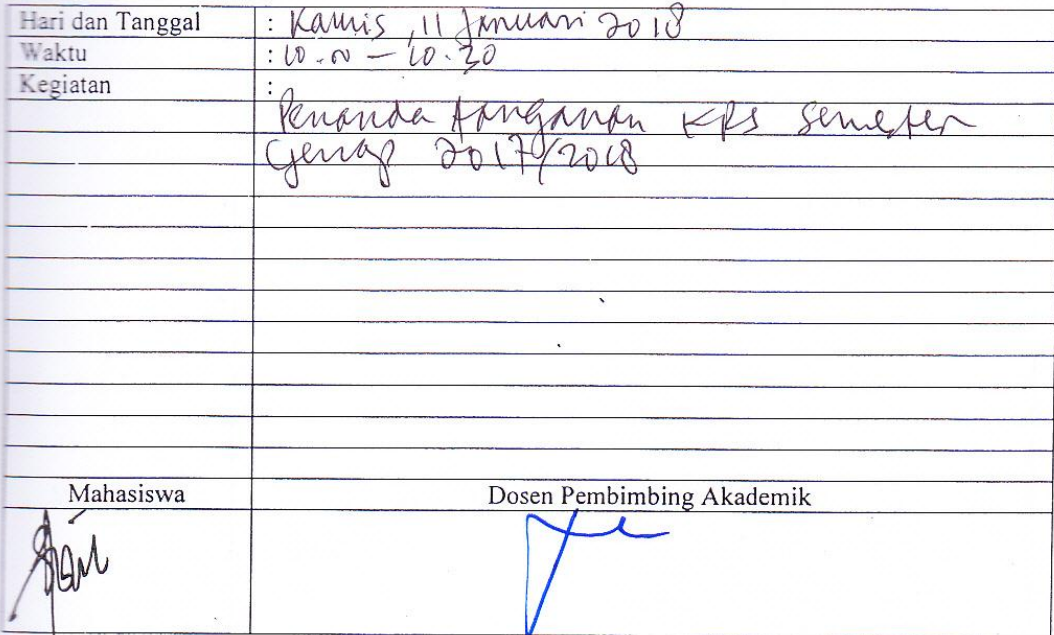 Hari dan Tanggal : Kamis, 11 Januari 2018
Waktu : 10.00 – 10.20
Kegiatan :
Penanda tanganan KRS Semester
Genap 2017/2018
Mahasiswa Dosen Pembimbing Akademik